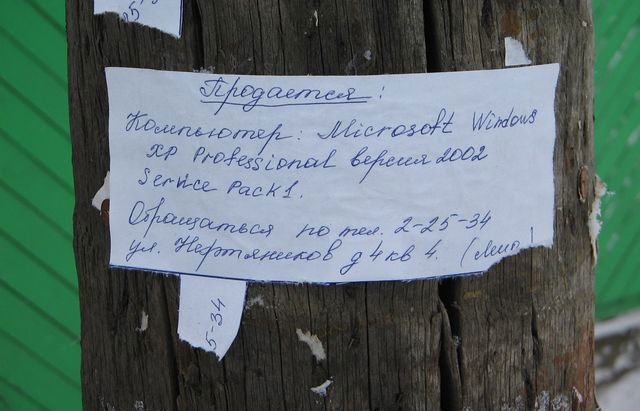 Продается:
Компьютер: Microsoft Windows
XP Professional версия 2002
Service Pack 1.
Обращаться по тел. 2-25-34
ул. Нефтяников д 4 кв 4.
5-34